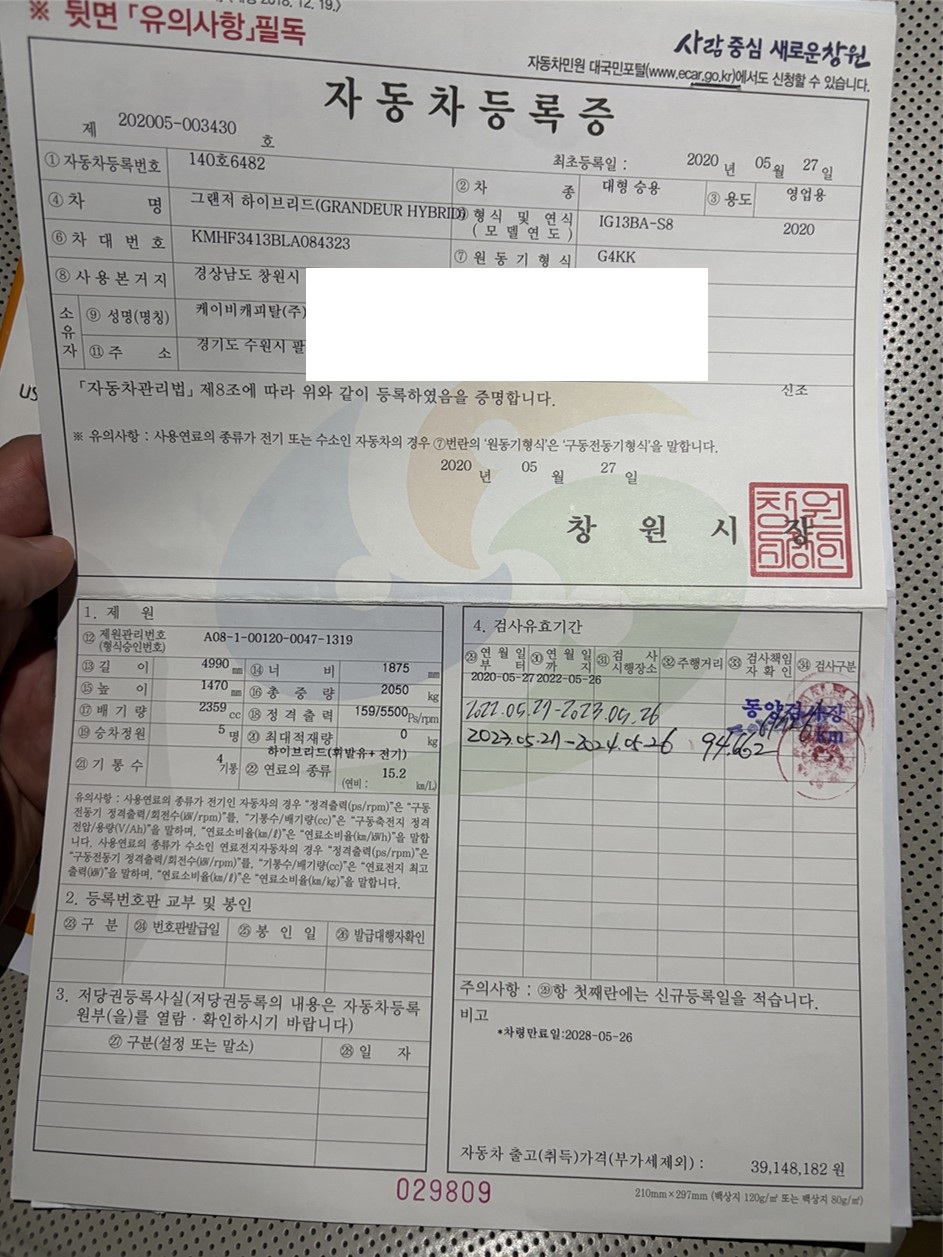 2018. 12. 19.>
※ 뒷면 「유의사항」필독
사람중심 새로운창원
자동차민원 대국민포털(www.ecar.go.kr)에서도 신청할 수 있습니다.
자동차등록증
제 202005-003430 호
최초등록일 : 2020 년 05 월 27 일
① 자동차등록번호 140호6482 ② 차 종 대형 승용 ③ 용도 영업용
④ 차 명 그랜저 하이브리드(GRANDEUR HYBRID) 형식 및 연식 (모델연도) IG13BA-S8 2020
⑥ 차대번호 KMHF3413BLA084323 ⑦ 원동기형식 G4KK
⑧ 사용본거지 경상남도 창원시
소유자 ⑨ 성명(명칭) 케이비캐피탈(주)
⑪ 주 소 경기도 수원시 팔
「자동차관리법」 제8조에 따라 위와 같이 등록하였음을 증명합니다.
신조
※ 유의사항 : 사용연료의 종류가 전기 또는 수소인 자동차의 경우 ⑦번란의 '원동기형식'은 '구동전동기형식'을 말합니다.
2020 년 05 월 27 일
창 원 시 장
1. 제 원
⑫ 제원관리번호 (형식승인번호) A08-1-00120-0047-1319
⑬ 길 이 4990 mm ⑭ 너 비 1875 mm
⑮ 높 이 1470 mm ⑯ 총 중 량 2050 kg
⑰ 배 기 량 2359 cc ⑱ 정격출력 159/5500 Ps/rpm
⑲ 승차정원 5 명 ⑳ 최대적재량 0 kg
㉑ 기 통 수 4 기통 ㉒ 연료의 종류 하이브리드(휘발유+전기) (연비 : 15.2 km/L)
유의사항 : 사용연료의 종류가 전기인 자동차의 경우 "정격출력(ps/rpm)"은 "구동
전동기 정격출력/회전수(kW/rpm)"를, "기통수/배기량(cc)"은 "구동축전지 정격
전압/용량(V/Ah)"을 말하며, "연료소비율(km/ℓ)"은 "연료소비율(km/kWh)"을 말합니
다. 사용연료의 종류가 수소인 연료전지자동차의 경우 "정격출력(ps/rpm)"은
"구동전동기 정격출력/회전수(kW/rpm)"를, "기통수/배기량(cc)"은 "연료전지 최고
출력(kW)"을 말하며, "연료소비율(km/ℓ)"은 "연료소비율(km/kg)"을 말합니다.
2. 등록번호판 교부 및 봉인
㉓ 구 분 ㉔ 번호판발급일 ㉕ 봉 인 일 ㉖ 발급대행자확인
3. 저당권등록사실(저당권등록의 내용은 자동차등록
원부(을)를 열람·확인하시기 바랍니다)
㉗ 구분(설정 또는 말소) ㉘ 일 자
4. 검사유효기간
㉙ 연월일 부터 ㉚ 연월일 까지 ㉛ 검사 시행장소 ㉜ 주행거리 ㉝ 검사책임자확인 ㉞ 검사구분
2020-05-27 2022-05-26
2022.05.27-2023.05.26
2023.05.27-2024.05.26 94,662 km
주의사항 : ㉙항 첫째란에는 신규등록일을 적습니다.
비고
*차령만료일:2028-05-26
자동차 출고(취득)가격(부가세제외) : 39,148,182 원
029809
210mm×297mm (백상지 120g/㎡ 또는 백상지 80g/㎡)